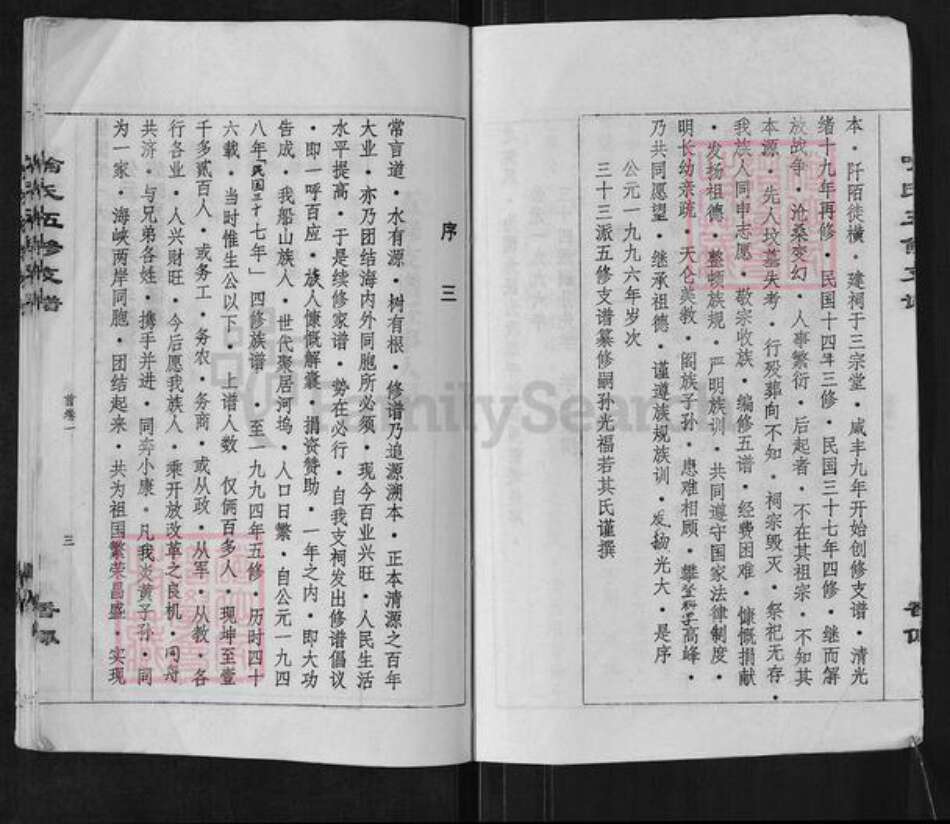 本·阡陌徒横·建祠于三宗堂·咸丰九年开始创修支谱·清光
绪十九年再修·民国十四年三修·民国三十七年四修·继而解
放战争·沧桑变幻·人事繁衍·后起者·不在其祖宗·不知其
本源·先人坟墓失考·行殁葬向不知·祠宗毁灭·祭祀无存·
我族人同申志愿·敬宗收族·编修五谱·经费困难·慷慨捐献
·发扬祖德·整顿族规·严明族训·共同遵守国家法律制度·
明长幼亲疏·天仑美教·阖族子孙·患难相顾·攀登科学高峰·
乃共同愿望·继承祖德·谨遵族规族训·发扬光大·是序
公元一九九六年岁次
三十三派五修支谱纂修嗣孙光福若其氏谨撰
序三
常言道·水有源·树有根·修谱乃追源溯本·正本清源之百年
大业·亦乃团结海内外同胞所必须·现今百业兴旺·人民生活
水平提高·于是续修家谱·势在必行·自我支祠发出修谱倡议
·即一呼百应·族人慷慨解囊·捐资赞助·一年之内·即大功
告成·我船山族人·世代聚居河坞·人口日繁·自公元一九四
八年「民国三十七年」四修族谱·至一九九四年五修·历时四十
六载·当时惟生公以下 上谱人数 仅俩百多人·现坤至壹
千多贰百人·或务工·务农·务商·或从政·从军·从教·各
行各业·人兴财旺·今后愿我族人·乘开放改革之良机·同舟
共济·与兄弟各姓·携手并进·同奔小康·凡我炎黄子孙·同
为一家·海峡两岸同胞·团结起来·共为祖国繁荣昌盛·实现
首卷一
三
五修支谱
FamilySearch